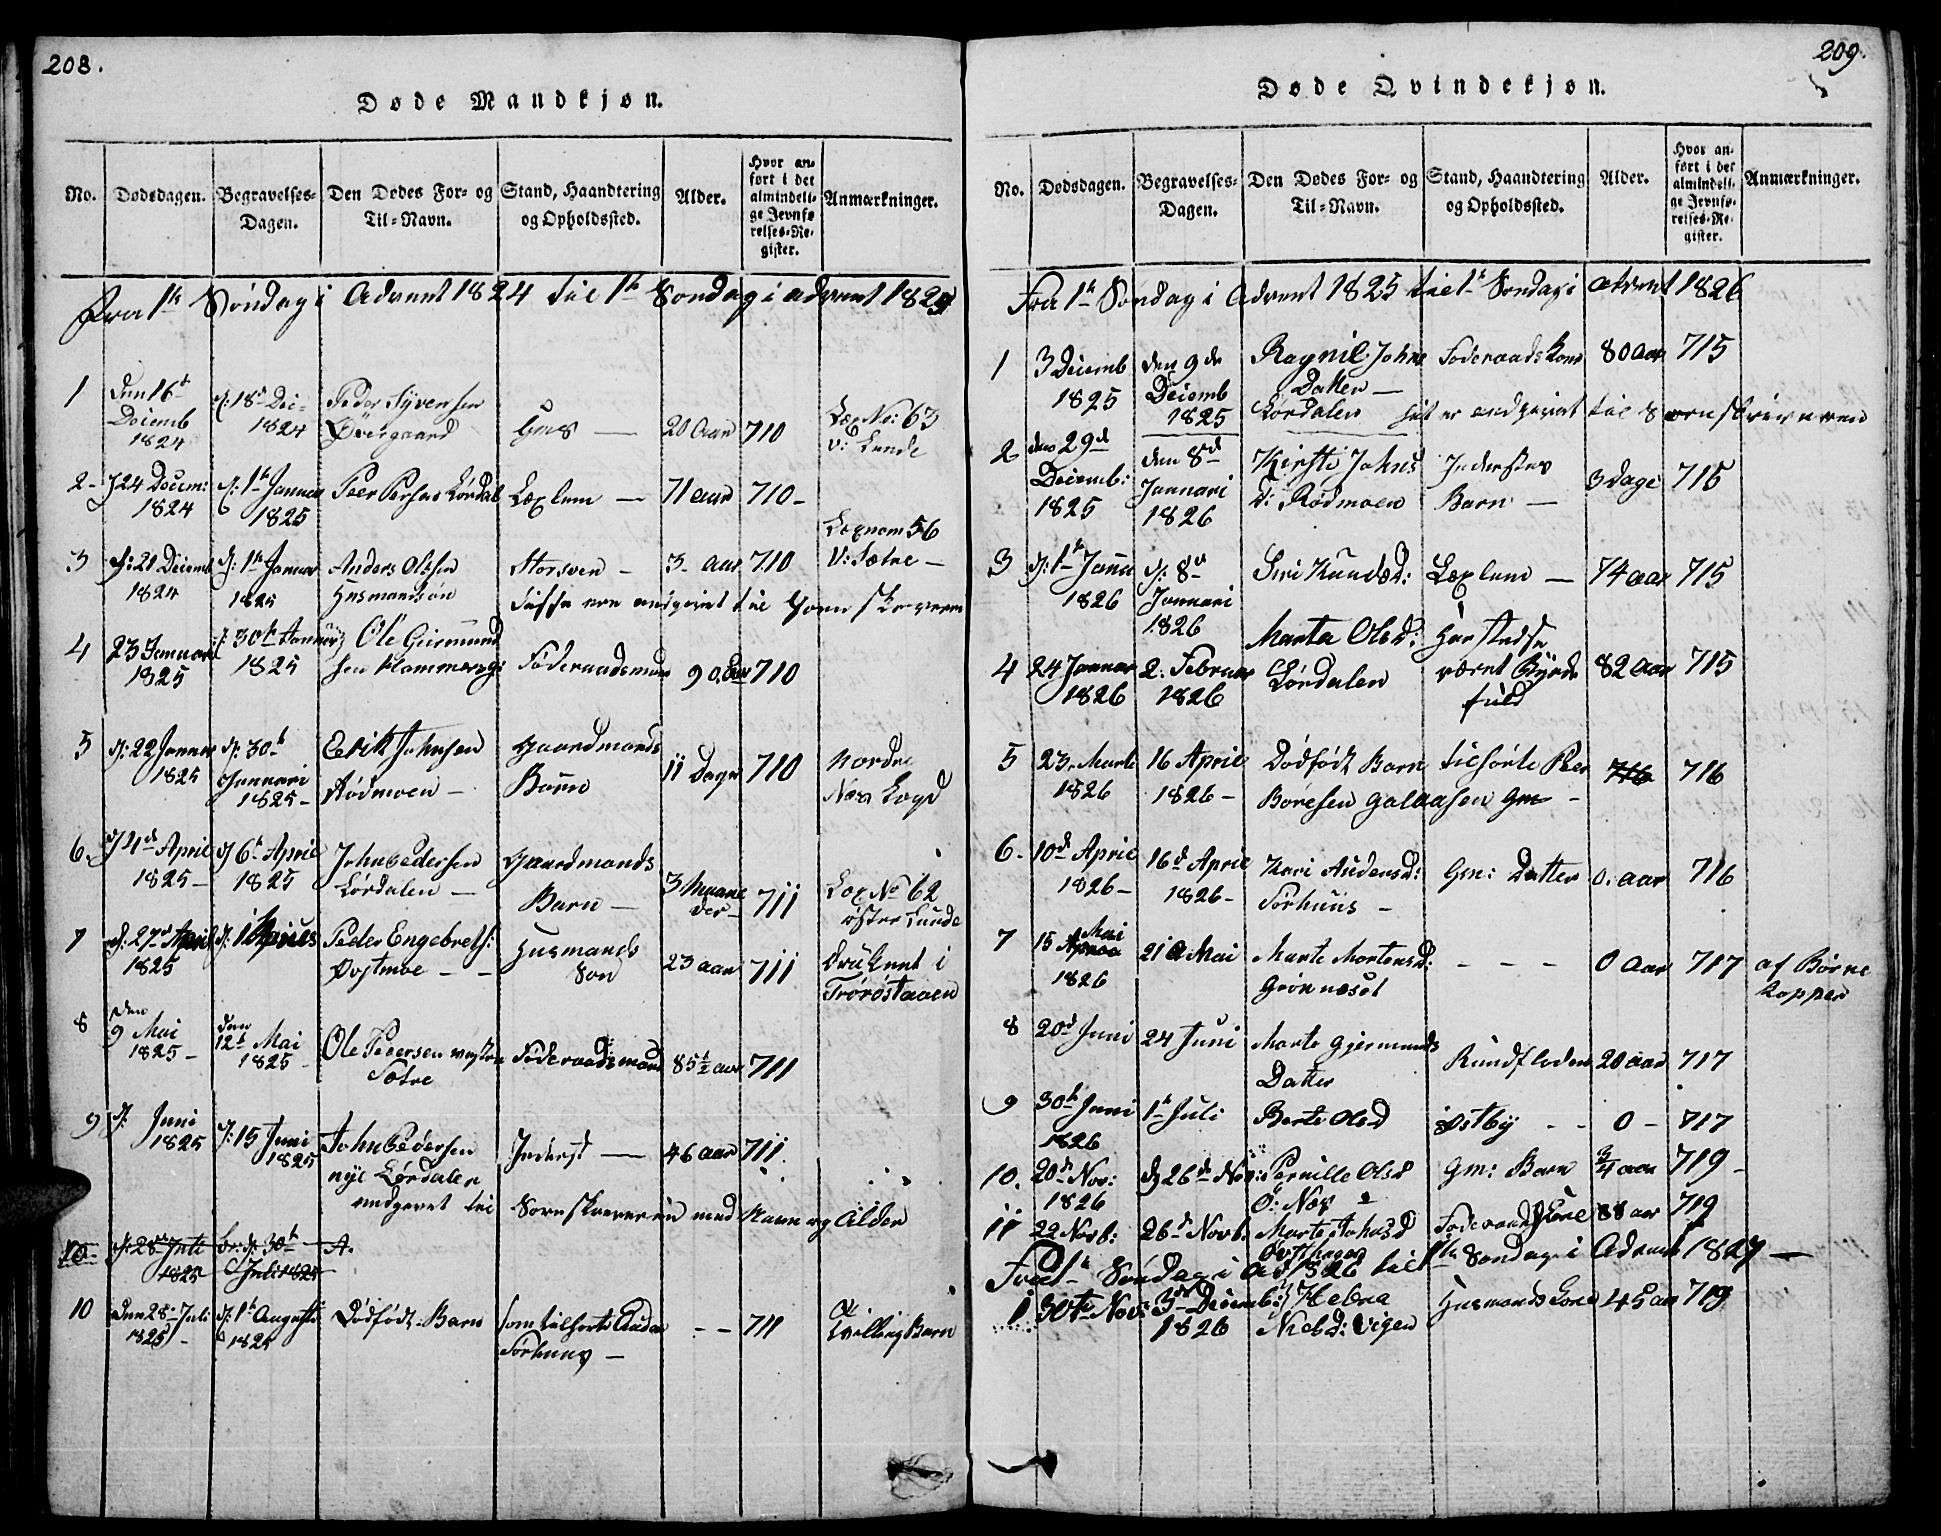 208.
Døde Mandkjøn.
No. Dødsdagen. Begravelses-Dagen. Den Dødes For- og Til-Navn. Stand, Haandtering og Opholdssted. Alder. Hvor anført i det almindelige Jevnførelses-Register. Anmærkninger.
Fra 1te Søndag i Advent 1824 til 1te Søndag i advent 1825
1 Den 16de Decemb 1824 d: 18de Dec 1824 Peder Syversen Øvergaard 20 Aar 710 No: 63 v: Lunde
2 24 Decem: 1824 d: 1te Januar 1825 Peer Persen Lørdal Lægslem — 71 aar 710 –
3 d: 21 Decemb 1824 d: 1te Januar 1825 Anders Olsen Husmandsøn Storsveen – 3 aar 710 56 V: Sætre –
til Sorenskriveren
4 23 Januari 1825 30te Januar 1825 Ole Guumund sen Føderaadsman 90 Aar 710
5 d: 22 Januar 1825 d: 30te Januari 1825 – Eerik Johnsen Rødmoen – Gaardmands Barn 11 Dage 710 Nordre Næs
6 d 4de April 1825 – d 6te April 1825 John Pedersen Lørdalen – Gaardmands Barn – 3 Maane der – 711 No 62 østre Lunde
7 d: 27de April 1825 d: 1 Peder Engebrets: Øvstmoe – – Husmands Søn 23 aar 711 Druknet i
8 den 9 Mai 1825 – den 12te Mai 1825 Ole Pedersen vestre Sætre Føderaadsmand 85½ aar 711
9 d: Juni 1825 d: 15 Juni 1825 John Pedersen nye Lørdalen Inderst — 46 aar 711
andgivet til Sorenskriveren med Navn og Alder
10 d: 28de Juli 1825 d: 30te Juli 1825 A.
10 Den 28de Juli 1825 – d: 1te Augusti 1825 Dødfødt Barn som tilhørte Torhuus – – – 711 Tvilling Barn
209.
Døde Qvindekjøn.
No. Dødsdagen. Begravelses-Dagen. Den Dødes For- og Til-Navn. Stand, Haandtering og Opholdssted. Alder. Hvor anført i det almindelige Jevnførelses-Register. Anmærkninger.
Fra 1te Søndag i Advent 1825 til 1te Søndag i Advent 1826
1 3 Decemb 1825 den 9de Decemb 1825 Ragnil Johns Datter – Lørdalen Føderaadskone 80 aar 715
er andgivet til Sorenskriveren
2 den 29de Decemb: 1825 den 8de Januari 1826 Kirsti Johns D: Rødmoen Inderstes Barn — 3 Dage 715
3 d: 1te Janu 1826 d: 8de Januari 1826 Siri Knudsd: Lægslem — 74 aar 715
4 24 Januar 1826 2. Februar 1826 Marta Olsd: Lørdalen været 82 aar 715
5 23. Marti 1826 16 April 1826 – Dødfødt Barn tilhørte Peer Boresen Galaasen Gm – 716 716
6. 10de April 1826 – 16de April 1826 – Kari Andersd: Torhuus – Gm: Datter 0. aar 716
7 15 Mai 1826 21 Mai Marte Mortensd: Grønnæset – – – 0 Aar 717 af Børne kopper
8 20de Juni 24 Juni Marte Gjermunds Datter Rundfloden 20 aar 717
9 30te Juni 1826 1te Juli Berte Olsd Østby – – 0 – 717
10. 20de Nov: 1826 d 26de Nov: Pernille Olsd Ø: Næs Gm: Barn ¾ aar 719 –
11 22 Novb: 26de Novb. Marte Johnsd Føderaadskone 88 aar 719
Fra 1te Søndag i Ad 1826 til 1te Søndag i Advent 1827 —
1 30te Nov: 3de Decemb: 1826 Nielsd: Vigen Husmandskone 45 aar 719